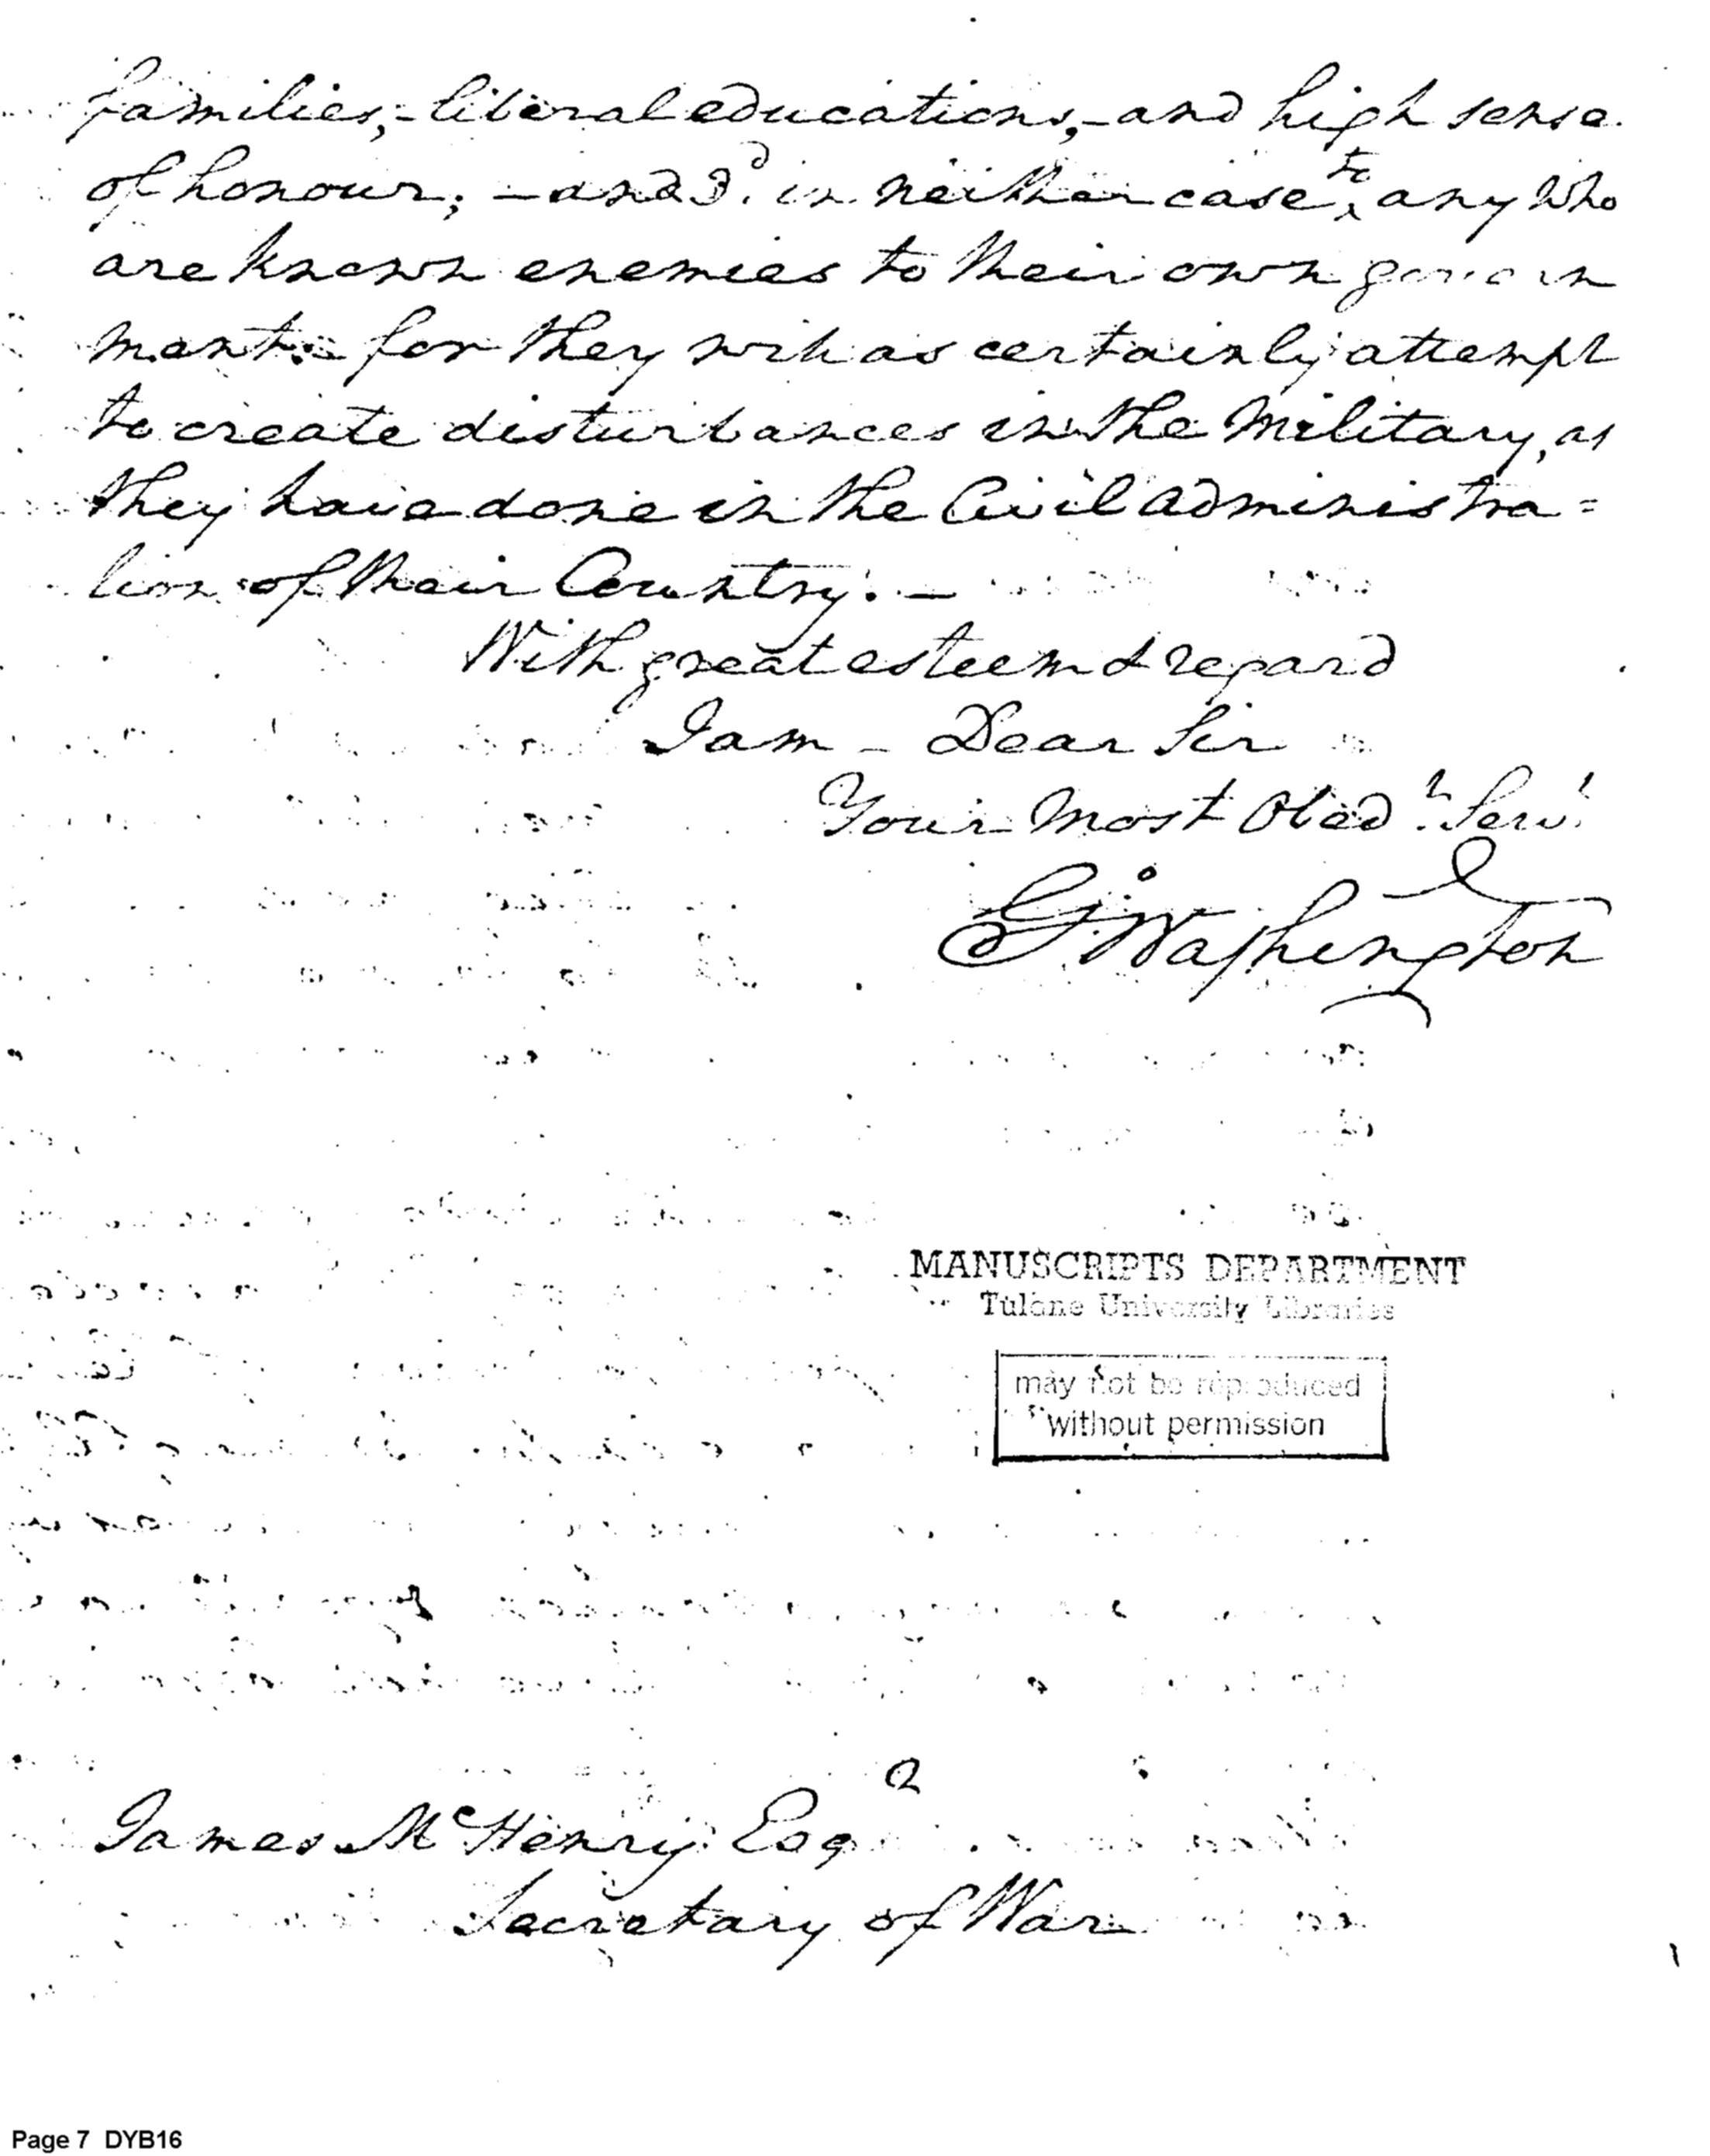 families,– liberal educations,– and high sense
of honour; – and 3.d in neither case, to any who
are known enemies to their own govern
ment: for they will as certainly attempt
to create disturbances in the Military, as
they have done in the Civil administra=
tion of their Country. –
With great esteem & regard
I am – Dear Sir
Your Most Obed.t Serv.t
G.o Washington
MANUSCRIPTS DEPARTMENT
Tulane University Libraries
may not be reproduced
without permission
James McHenry Esqr
Secretary of War
Page 7 DYB16